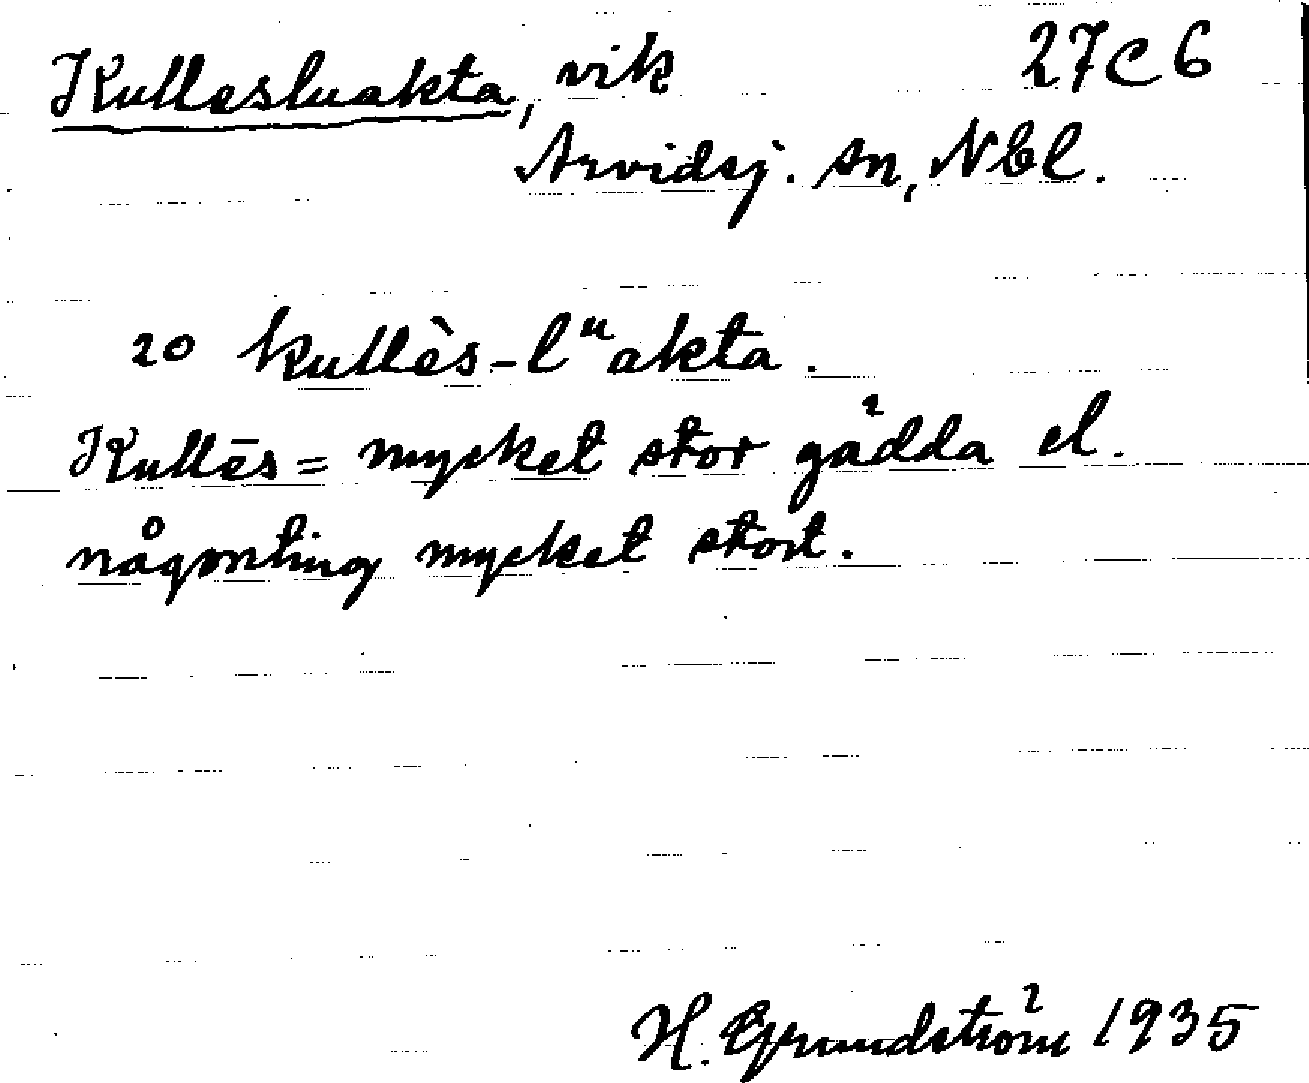 Kullesluakta, vik 27C6
Arvidsj. sn, Nbl.
20 kullès-lᵘakta.
Kullēs = mycket stor gädda el.
någonting mycket stort.
H. Grundström 1935